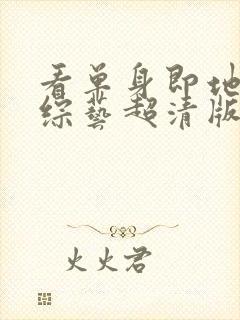 看单身即地
综艺超清版
火火君